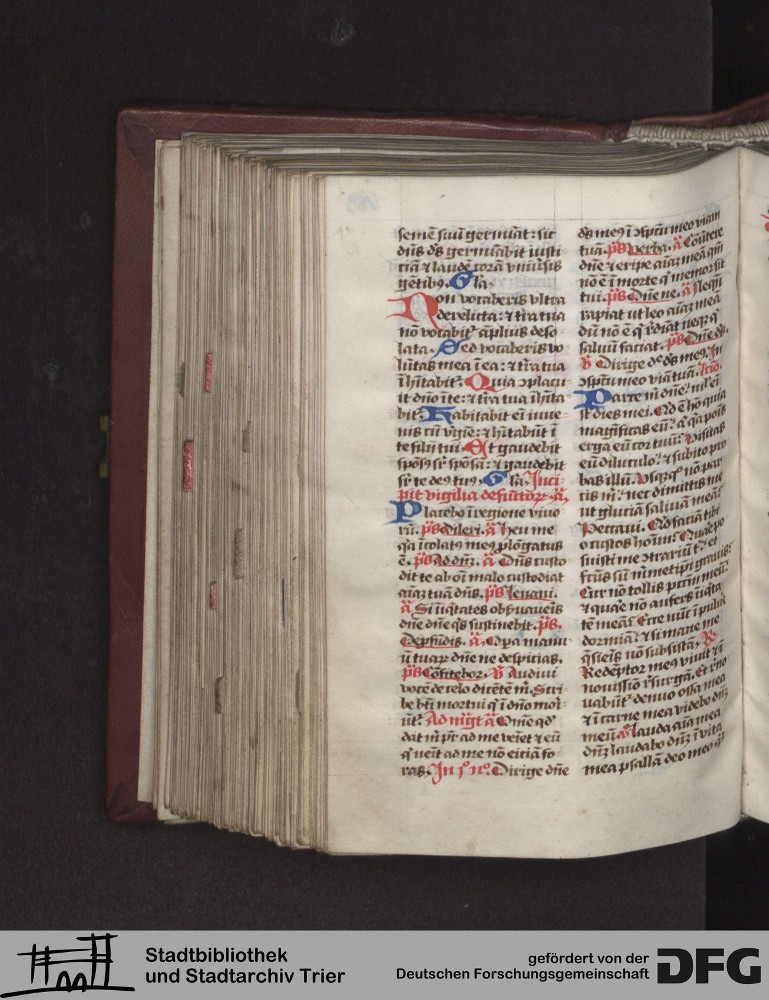 semē suū germīat: sic
dn̄s ds̄ germīabit iusti
ciā ⁊ laudē corā vniu̾sis
gētib9. Gl̄a.
Non vocaberis vltra
derelicta: ⁊ tr̄a tua
nō vocabit᷑ āplius deso
lata. Sed vocaberis vo
lūtas mea ī ea: ⁊ tr̄a tua
īh̄itabit᷑. Quia ɔplacu
it dn̄o ī te: ⁊ tr̄a tua īh̄ita
bit᷑. Habitabit eī iuue
nis cū vgīe: ⁊ h̄itabūt ī
te filij tui. Et gaudebit
spōs9 sr̄ spōsā: ⁊ gaudebit
sr̄ te de9 tu9. Gl̄a. Inci
pit vigilia defūctoꝝ. ā
Placebo ī regione viuo
rū. ps̄ Dilexi. ā Heu me
q̄a īcolat9 me9 plōgatus
ē. ps̄ Ad dn̄z. ā Dn̄s custo
dit te ab oī malo custodiat
aīaꝫ tuā dn̄s. ps̄ Leuaui.
ā Si īiq̄tates obs̾uaueis
dn̄e dn̄e q̄s sustinebit. ps̄.
De ꝓfūdis. ā. Opa manu
ū tuaꝝ dn̄e ne despicias.
ps̄ Cōfitebor. Audiui
vocē de celo dicētē m̄. Scri
be bt̄i mortui q̄ ī dn̄o mori
ūt᷑. Ad mḡt ā Omē qd̾
dat m̄ pr̄ ad me veīet ⁊ eū
q̄ venit ad me nō eiciā fo
ras. In Dirige dn̄e
ds̄ me9 ī ɔspc̄u meo viam
tuā. ps̄ Verba. ā Cōu̾tere
dn̄e ⁊ eripe aīaꝫ meā qm̄
nō ē ī morte q̄ memor sit
tui. ps̄ Dn̄e ne. ā Neqn̄
rapiat ut leo aīaꝫ meā
dū nō ē q̄ r̾dimat neqꝫ q̄
saluū faciat. ps̄ Dn̄e ds̄.
Dirige dn̄e ds̄ me9. In
ɔspc̄u meo viā tuā.
Parce m̄ dn̄e: nl̄ eī
st̄ dies mei. Qd̾ ē hō quia
magīficas eū: a᷑ q̄a poīs
erga eū cor tuū: Visitas
eū dilucl̾o: ⁊ subito pro
bas illū. Vsqꝫq̊ nō par
cis m̄: nec dimittis me
ut glucia saliuā meā:
Peccaui. Qd̾ faciā tibi
o custos hoīm: Quare po
suisti me ɔtrariū t̄: et
fc̄us sū m̄metipi grauis:
Cur nō tollis pctm̄ meū:
⁊ quare nō aufers īiq̄ta
tē meā: Ecce nūc ī pulu̾e
dormiā: ⁊ si mane me
q̄sieris nō subsistā. ꝶ
Redēptor me9 viuit ⁊ ī
nouissīo r̾surgā. Et r̾no
uabūt᷑ denuo ossa mea
⁊ ī carne mea videbo dn̄z
meū. Lauda aīa mea
dn̄z laudabo dn̄z ī vita
mea psallā deo meo q̄
Stadtbibliothek
und Stadtarchiv Trier
gefördert von der
Deutschen Forschungsgemeinschaft
DFG